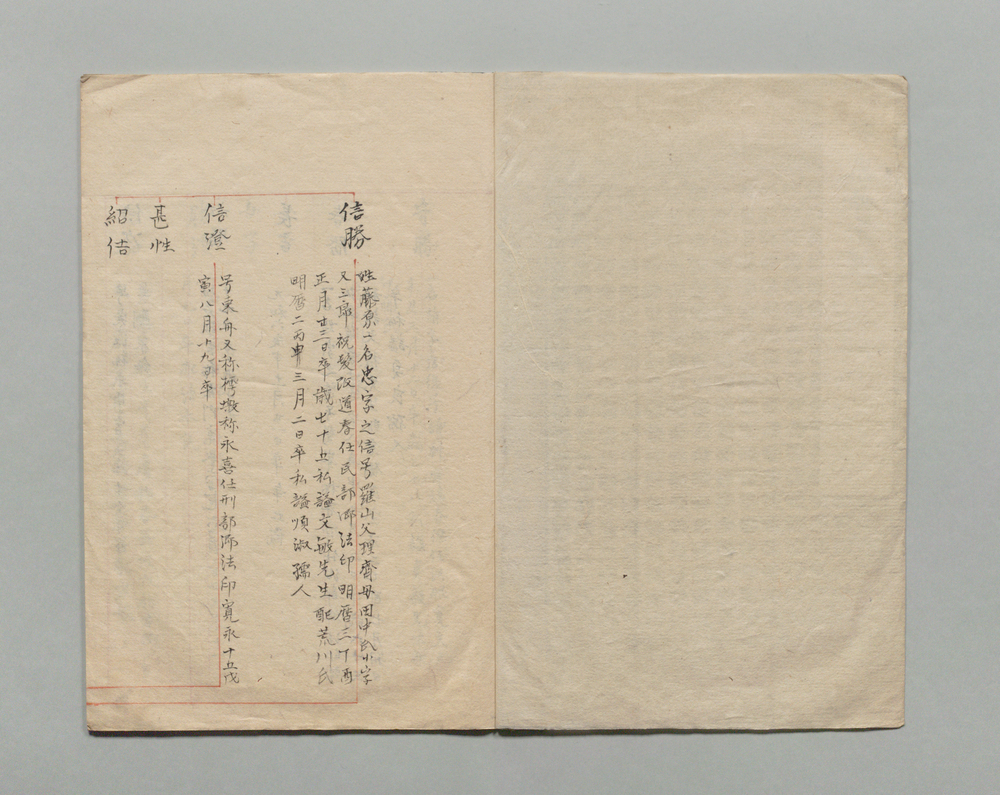 信勝
姓藤原一名忠字之信号羅山父理齋母田中氏小字
又三郎祝髪改道春任民部卿法印明暦三丁酉
正月廿三日卒歳七十五私謚文敏先生配荒川氏
明暦二丙申三月二日卒私謚順淑孺人
信澄
号東舟又称樗墩称永喜任刑部卿法印寛永十五戊
寅八月十九日卒
甚性
紹佶